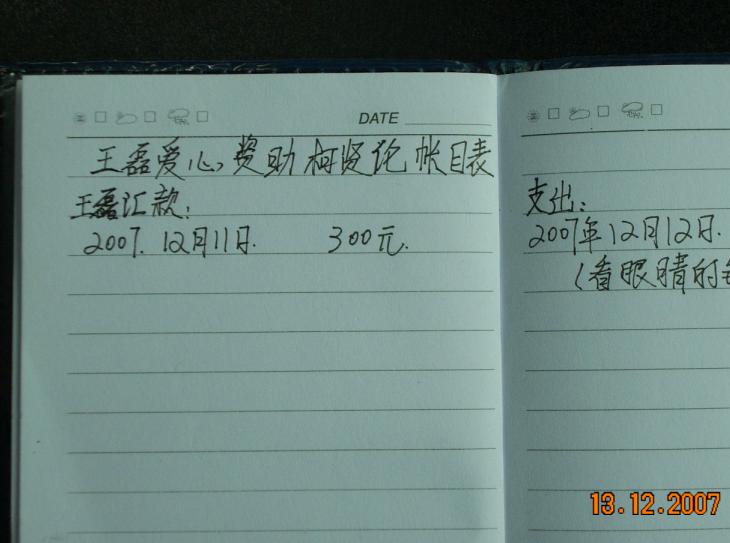 DATE
王磊爱心资助柯贤伦帐目表
王磊汇款:
2007.12月11日. 300元.
支出:
2007年12月12日.
(看眼睛的
13.12.2007